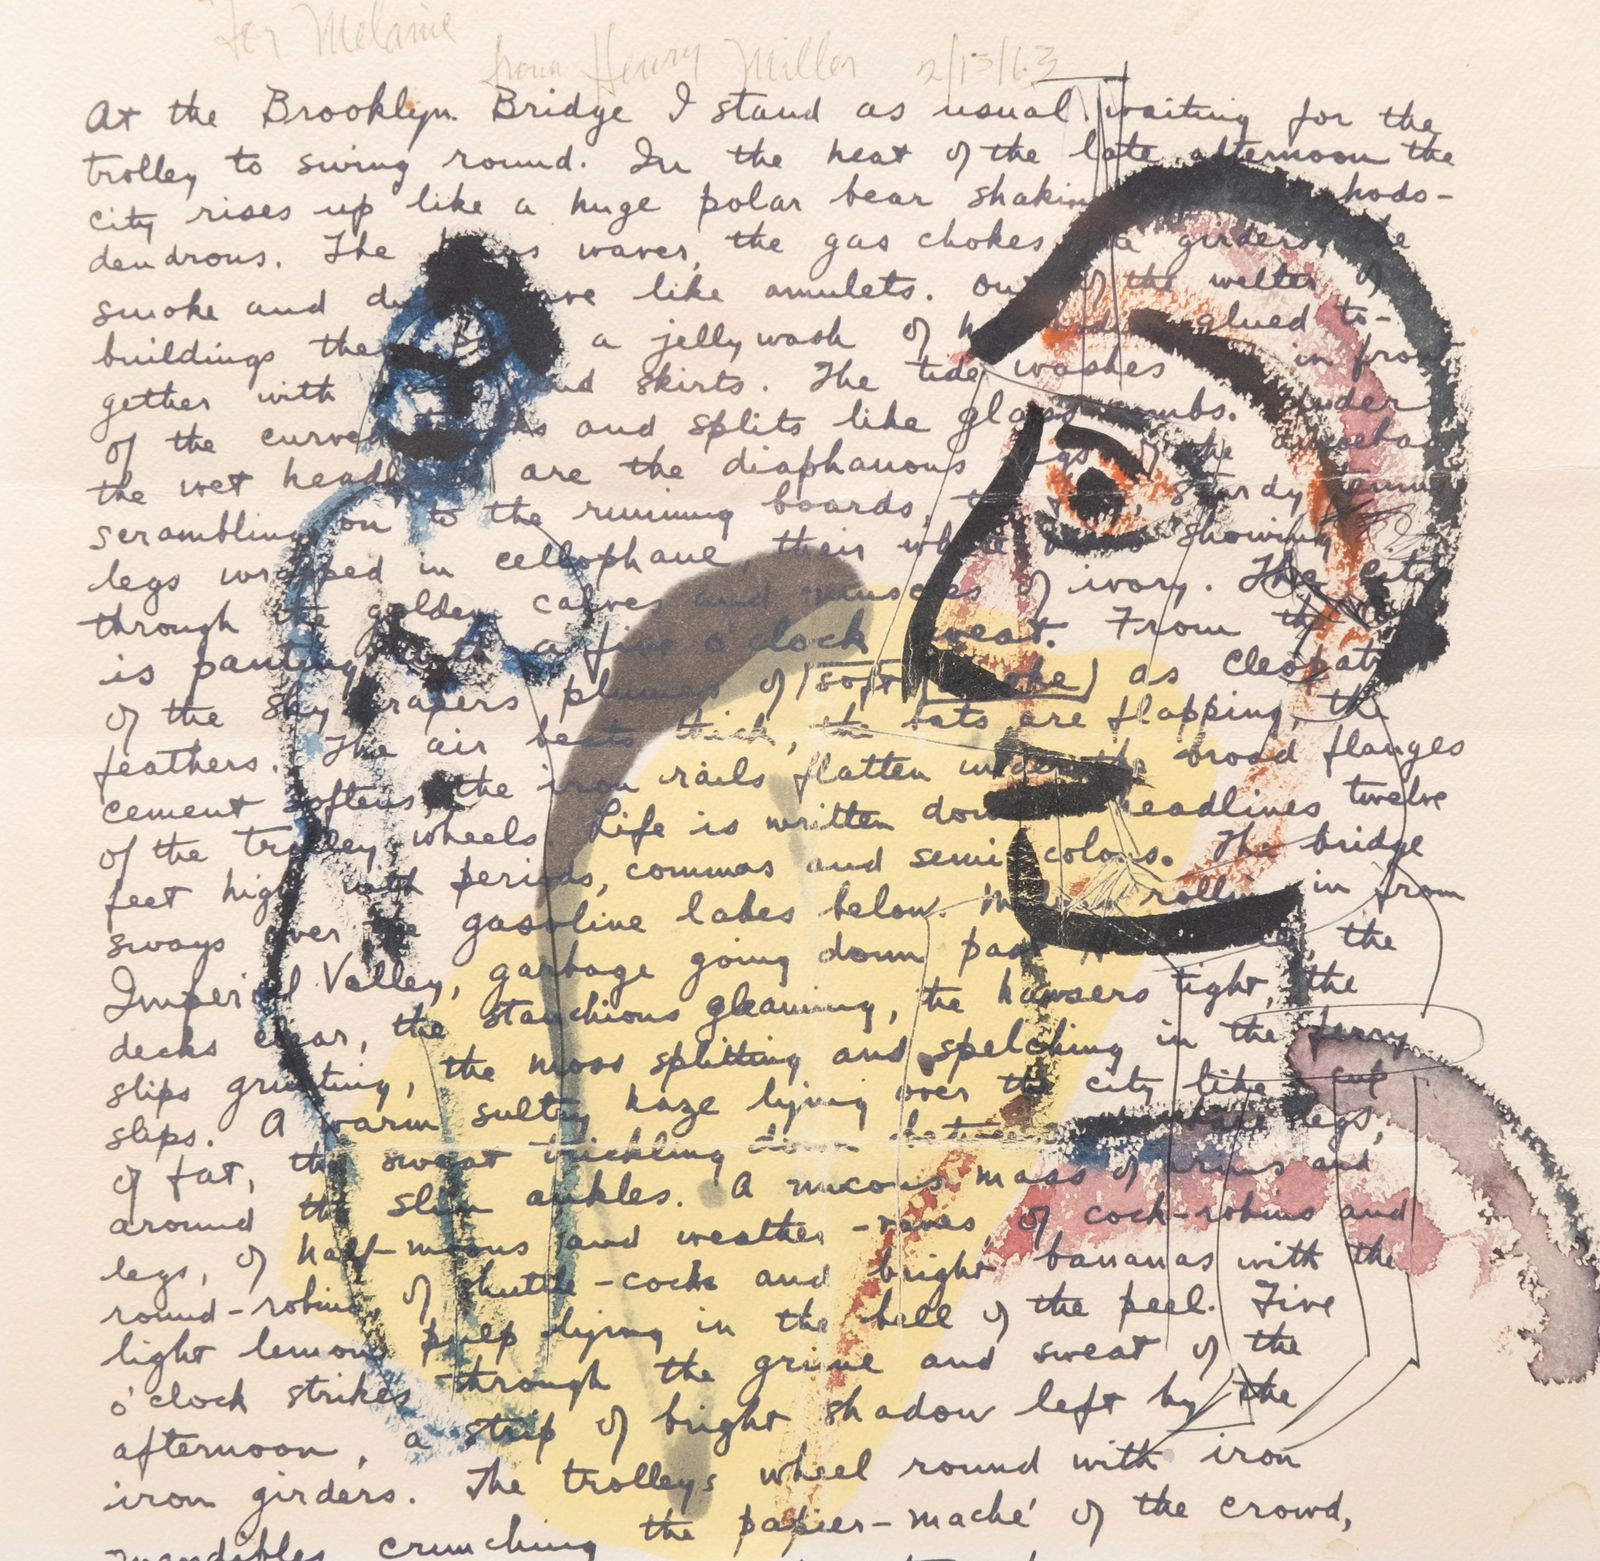 For Melanie
from Henry Miller 2/13/63
At the Brooklyn Bridge I stand as usual waiting for the
trolley to swing round. In the heat of the late afternoon the
city rises up like a huge polar bear shaking hods-
dendrons. The waves, the gas chokes the girders, the
smoke and like amulets. Out of the welter of
buildings there a jelly wash of glued to-
gether with and skirts. The tide washes in front
of the curved and splits like glass combs. Under
the wet headlines are the diaphanous legs of the
scrambling on to the running boards, sturdy tennis
legs wrapped in cellophane, their white showing
through the golden calves and muscles of ivory. The city
is panting with a five o'clock sweat. From the
of the skyscrapers plumes of (soft smoke) as Cleopatra
feathers. The air beats thick, the bats are flapping, the
cement softens, the iron rails flatten under the broad flanges
of the trolley wheels. Life is written down headlines twelve
feet high with periods, commas and semi colons. The bridge
sways over the gasoline lakes below. rolling in from
Imperial Valley, garbage going down past the
decks clear, the stanchions gleaming, the hawsers tight, the
slips grunting, the moss splitting and spelching in the ferry
slips. A warm sultry haze lying over the city like a cup
of fat, the sweat trickling down between legs,
around the slim ankles. A mucous mass of arms and
legs, of half-moons and weather-vanes, of cock-robins and
round-robins, of shuttle-cocks and bright bananas with the
light lemon pulp lying in the bell of the peel. Five
o'clock strikes through the grime and sweat of the
afternoon, a strip of bright shadow left by the
iron girders. The trolleys wheel round with iron
mandibles crunching the papier-maché of the crowd,